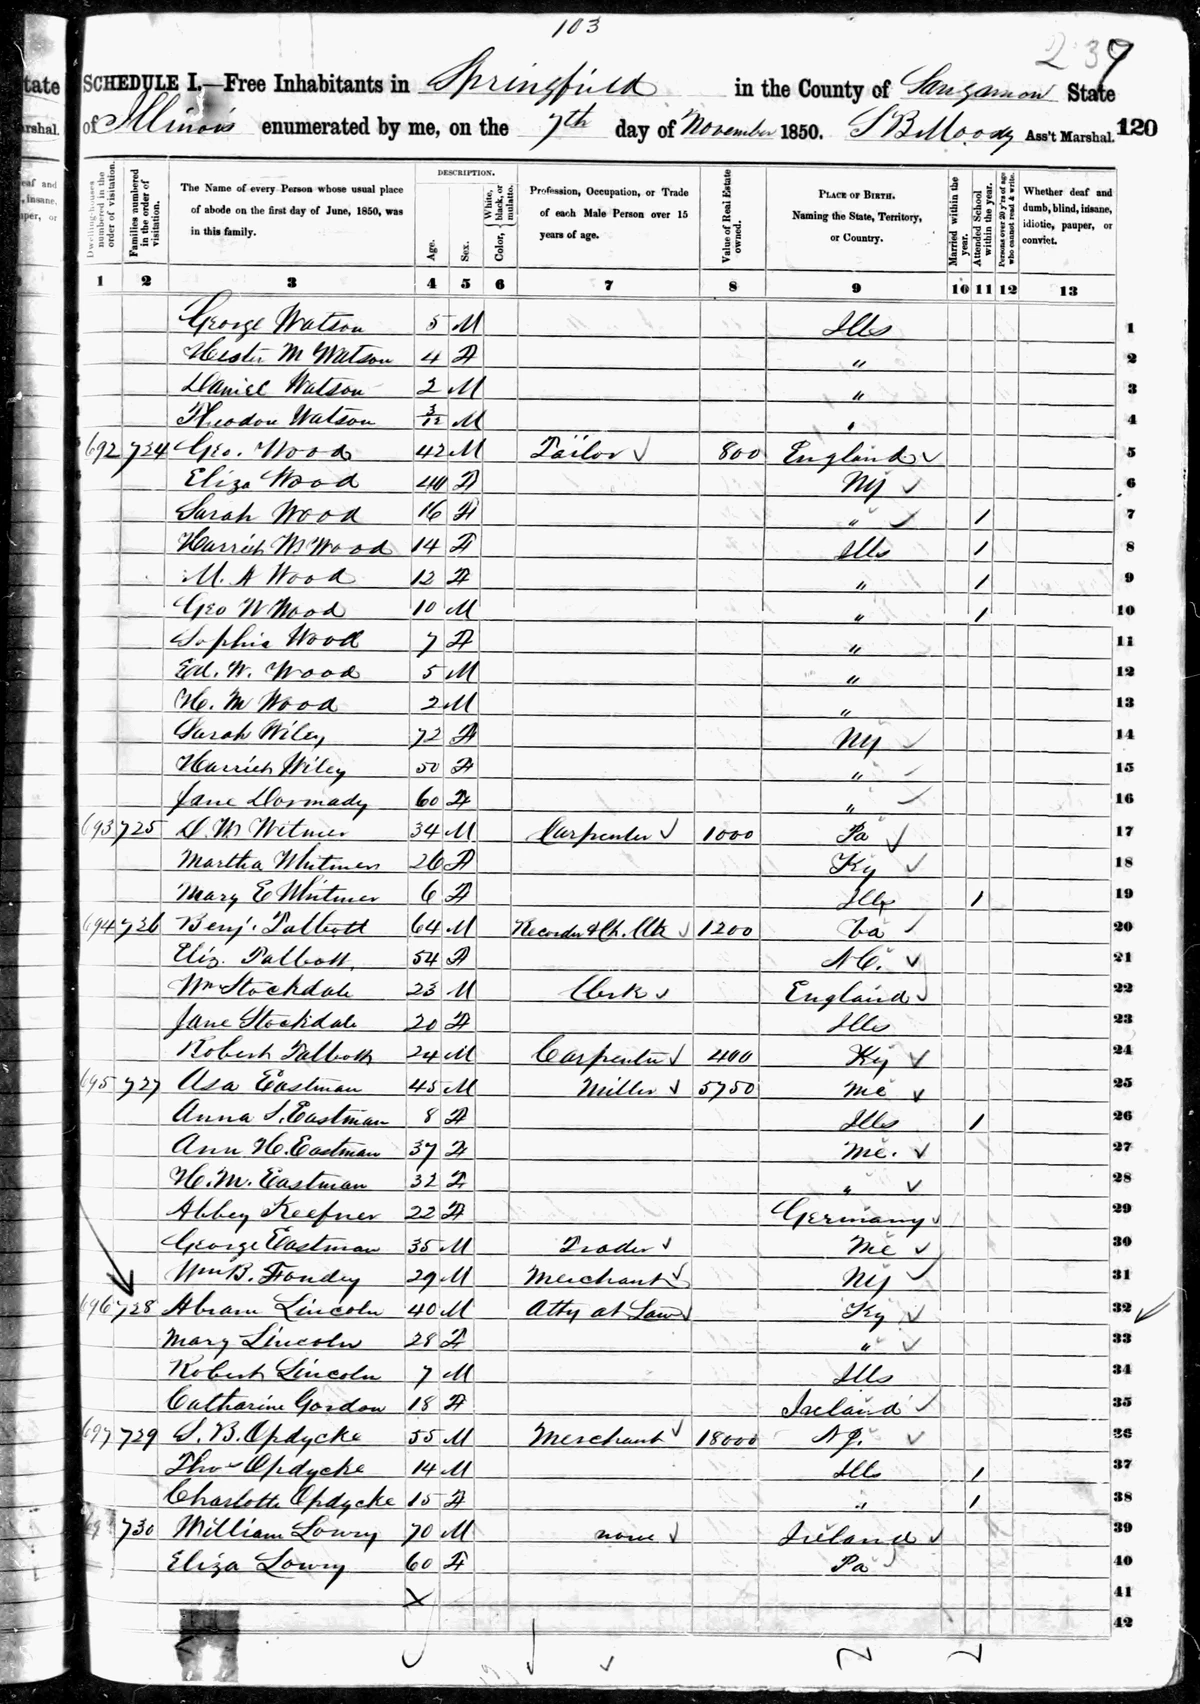 103
239
SCHEDULE I.—Free Inhabitants in Springfield in the County of Sangamon State
of Illinois enumerated by me, on the 7th day of November 1850. S B Moody Ass't Marshal. 120
Dwelling-houses numbered in the order of visitation.
Families numbered in the order of visitation.
The Name of every Person whose usual place of abode on the first day of June, 1850, was in this family.
DESCRIPTION.
Age.
Sex.
Color, White, black, or mulatto.
Profession, Occupation, or Trade of each Male Person over 15 years of age.
Value of Real Estate owned.
PLACE OF BIRTH. Naming the State, Territory, or Country.
Married within the year.
Attended School within the year.
Persons over 20 y'rs of age who cannot read & write.
Whether deaf and dumb, blind, insane, idiotic, pauper, or convict.
1 2 3 4 5 6 7 8 9 10 11 12 13
George Watson 5 M Ills 1
Hester M Watson 4 F " 2
Daniel Watson 2 M " 3
Theodon Watson 3/12 M " 4
692 724 Geo. Wood 42 M Tailor ✓ 800 England ✓ 5
Eliza Wood 40 F NY ✓ 6
Sarah Wood 16 F " ✓ 1 7
Harriet W Wood 14 F Ills 1 8
M. A Wood 12 F " 1 9
Geo W Wood 10 M " 1 10
Sophia Wood 7 F " 11
Ed. W. Wood 5 M " 12
H. M Wood 2 M " 13
Sarah Wiley 72 F NY ✓ 14
Harriet Wiley 50 F " ✓ 15
Jane Dormady 60 F " ✓ 16
693 725 D. W Witmer 34 M Carpenter ✓ 1000 Pa ✓ 17
Martha Whitmer 26 F Ky ✓ 18
Mary E Whitmer 6 F Ills 1 19
694 726 Benj. Talbott 64 M Recorder & Ch. Clk ✓ 1200 Va ✓ 20
Eliz. Talbott 54 F N C. ✓ 21
Wm Stockdale 23 M Clerk ✓ England ✓ 22
Jane Stockdale 20 F Ills 23
Robert Talbott 24 M Carpenter ✓ 400 Ky ✓ 24
695 727 Asa Eastman 45 M Miller ✓ 5750 Me ✓ 25
Anna S. Eastman 8 F Ills 1 26
Ann H. Eastman 37 F Me. ✓ 27
H. M. Eastman 32 F " ✓ 28
Abbey Keefner 22 F Germany ✓ 29
George Eastman 35 M Trader ✓ Me ✓ 30
Wm B. Fondey 29 M Merchant ✓ NY ✓ 31
696 728 Abram Lincoln 40 M Atty at Law ✓ Ky ✓ 32 ✓
Mary Lincoln 28 F " ✓ 33
Robert Lincoln 7 M Ills 34
Catharine Gordon 18 F Ireland ✓ 35
697 729 S. B. Opdycke 55 M Merchant ✓ 18000 N J. ✓ 36
Thos Opdycke 14 M Ills 1 37
Charlotte Opdycke 15 F " 1 38
730 William Lowry 70 M none ✓ Ireland ✓ 39
Eliza Lowry 60 F Pa ✓ 40
X 41
42